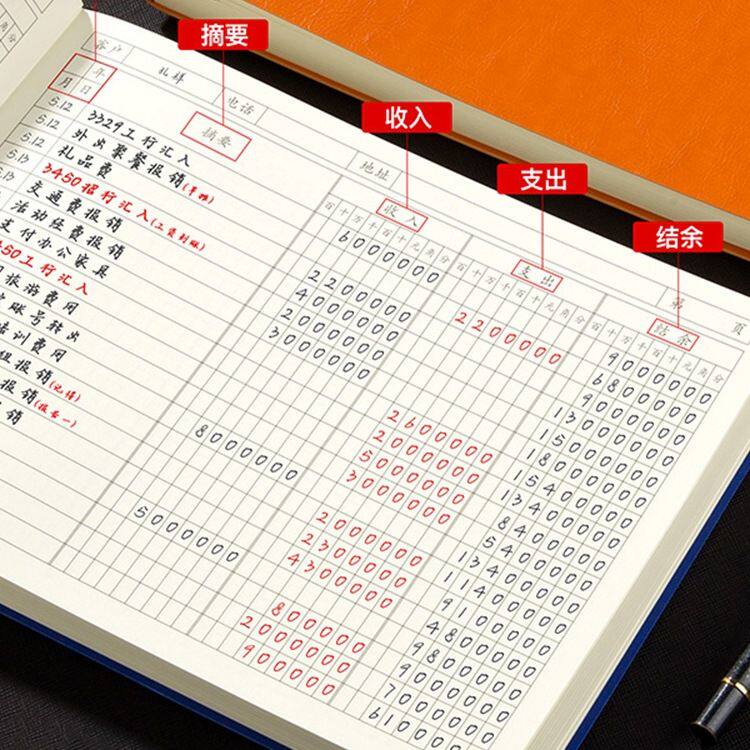 摘要
收入
支出
结余
客户
电话
地址
第 页
年
月 日
摘要
收入
支出
结余
百十万千百十元角分
百十万千百十元角分
百十万千百十元角分
5.12 3329工行汇入
5.12 外出聚餐报销
5.13 礼品费
5.13 3450招行汇入(工资到账)
交通费报销
活动经费报销
支付办公家具
50工行汇入
旅游费用
账号转出
培训费用
组报销
报销
销
6000000
2200000
4000000
2000000
3000000
8000000
5000000
2200000
2600000
2000000
5000000
3000000
2000000
2300000
4300000
800000
2000000
900000
9000000
6800000
9000000
13000000
15000000
18000000
15400000
13400000
8400000
5400000
13400000
11400000
9100000
4800000
9800000
9000000
7000000
6100000